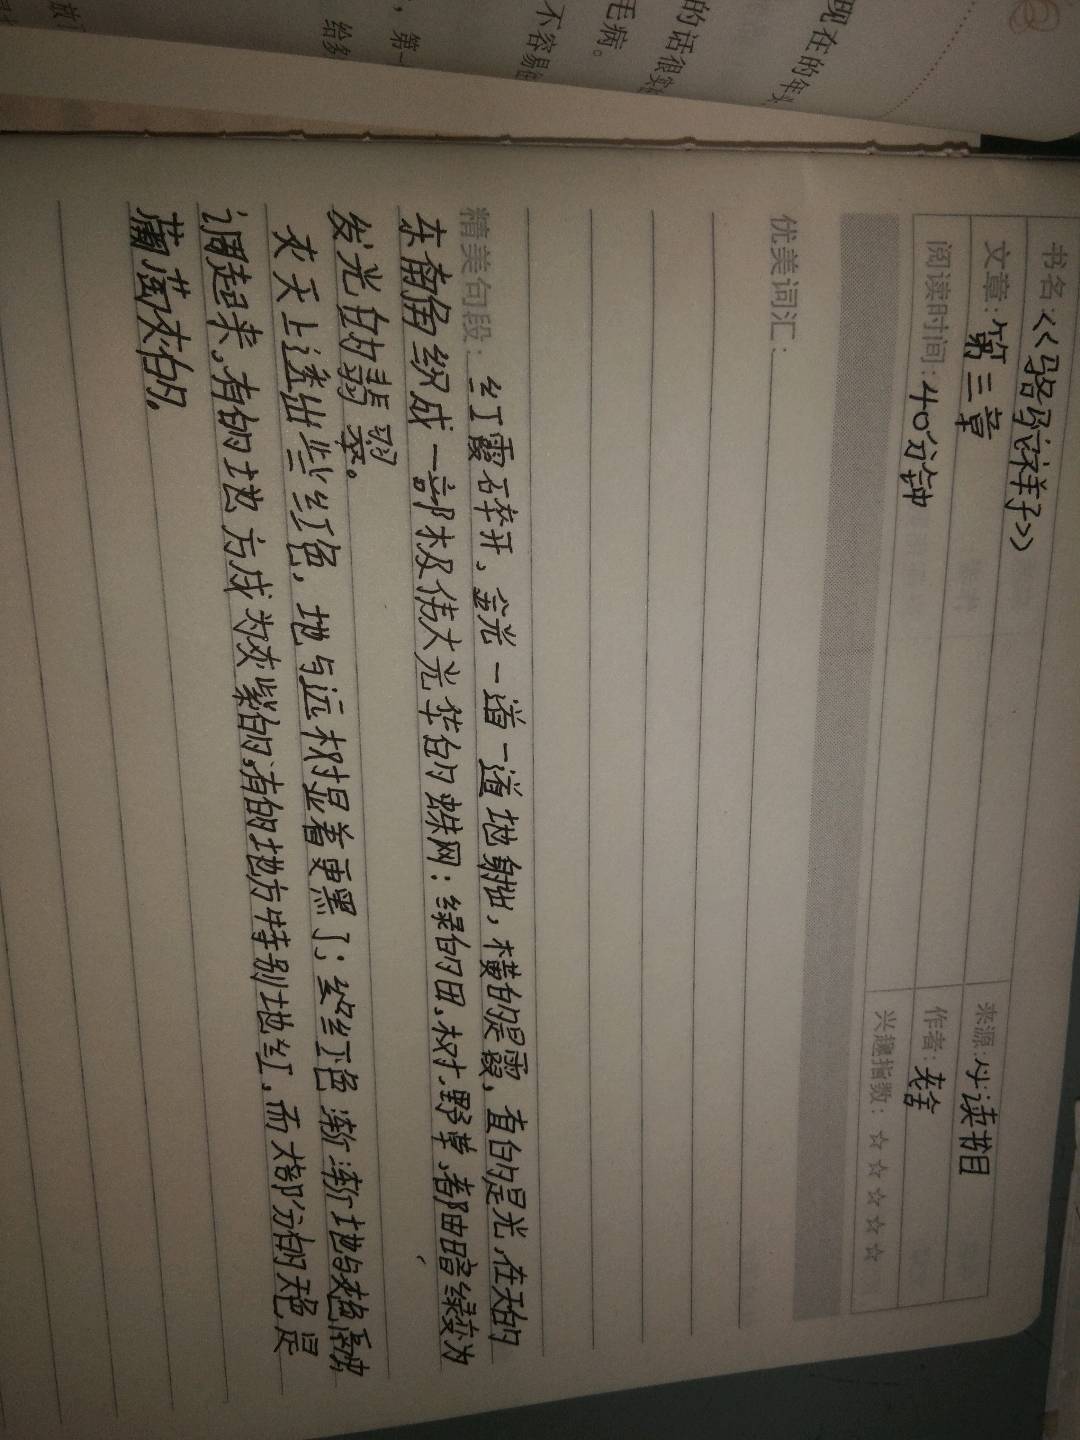 现在的年
的话很
毛病。
不容易
，第一
给多
书名:<<骆驼祥子>>
文章:第三章
来源:必读书目
阅读时间:40分钟
作者:老舍
兴趣指数:☆☆☆☆☆
优美词汇:
精美句段:红霞碎开，金光一道一道地射出，横的是霞，直的是光，在天的
东南角织成一部极伟大光华的蛛网：绿的田、树、野草，都由暗绿变为
发光的翡翠。
灰天上透出些红色，地与远树显着更黑了；红色渐渐地与灰色融
调起来，有的地方成为灰紫的，有的地方特别地红，而大部分的天色是
葡萄灰的。